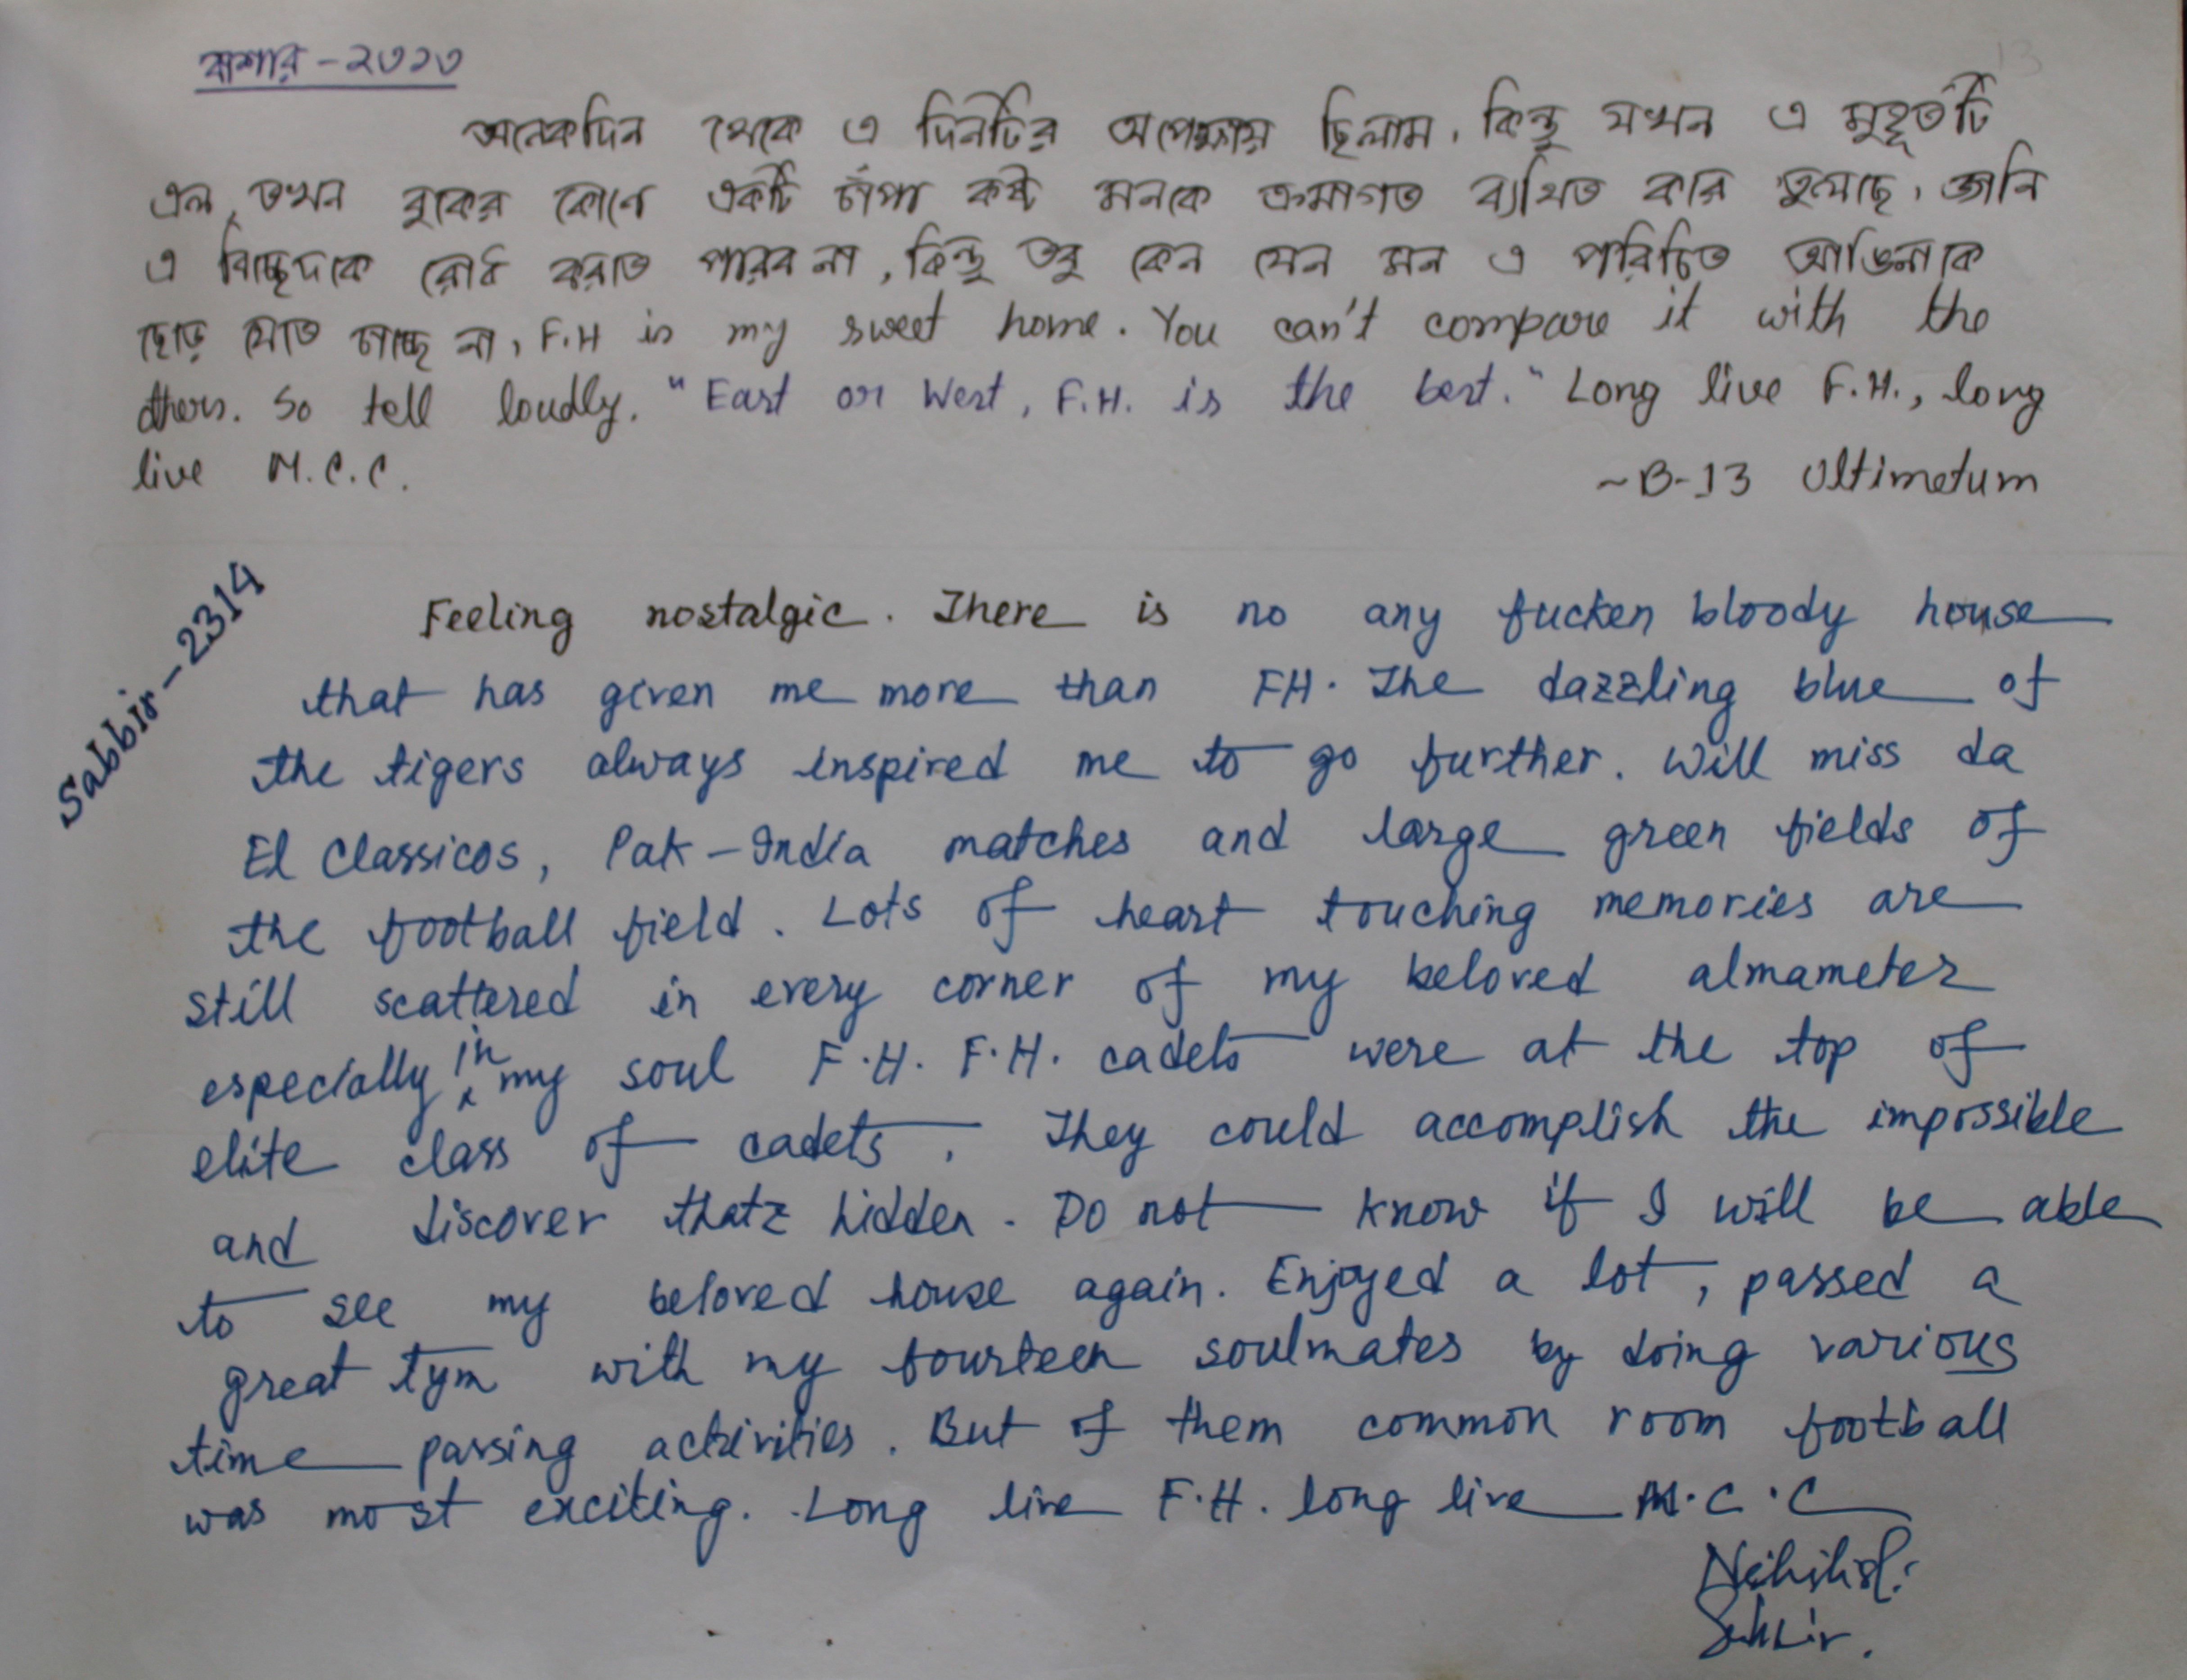 বাশার - ২৩১৩
13
অনেকদিন থেকে এ দিনটির অপেক্ষায় ছিলাম, কিন্তু যখন এ মুহূর্তটি
এল, তখন বুকের কোণে একটি চাঁপা কষ্ট মনকে ক্রমাগত ব্যথিত করে তুলেছে, জানি
এ বিচ্ছেদকে রোধ করতে পারব না, কিন্তু তবু কেন যেন মন এ পরিচিত আঙিনাকে
ছেড়ে যেতে চাচ্ছে না, F.H is my sweet home. You can't compare it with the
others. So tell loudly. "East or West, F.H. is the best." Long live F.H., long
live M.C.C.
~B-13 Ultimetum
Sabbir - 2314
Feeling nostalgic. There is no any fucken bloody house
that has given me more than FH. The dazzling blue of
the tigers always inspired me to go further. Will miss da
El Classicos, Pak-India matches and large green fields of
the football field. Lots of heart touching memories are
still scattered in every corner of my beloved almameter
especially in my soul F.H. F.H. cadets were at the top of
elite class of cadets. They could accomplish the impossible
and discover thatz hidden. Do not know if I will be able
to see my beloved house again. Enjoyed a lot, passed a
great tym with my fourteen soulmates by doing various
time passing activities. But of them common room football
was most exciting. Long live F.H. long live M.C.C
Nihilist:
Sabbir.